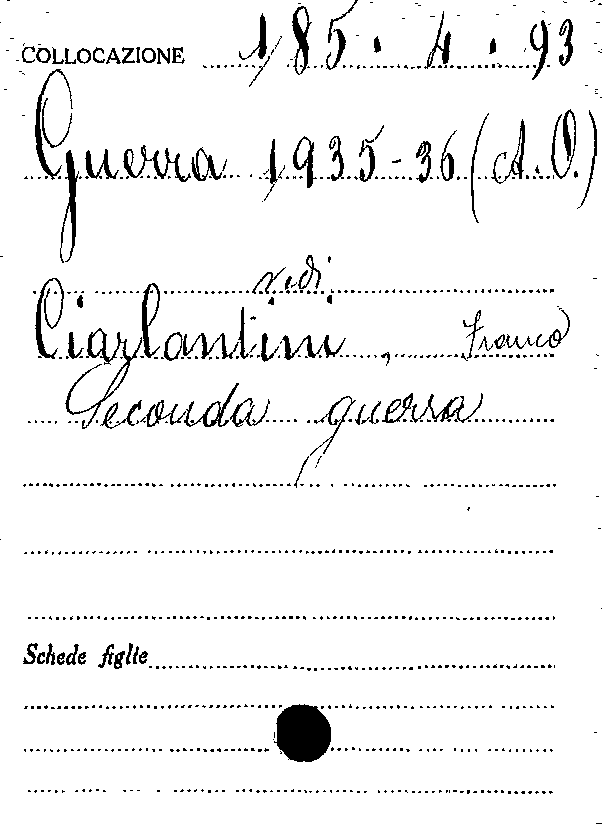 COLLOCAZIONE 185.4.93
Guerra 1935-36 (A.O.)
vedi
Ciarlantini, Franco
Seconda guerra
Schede figlie